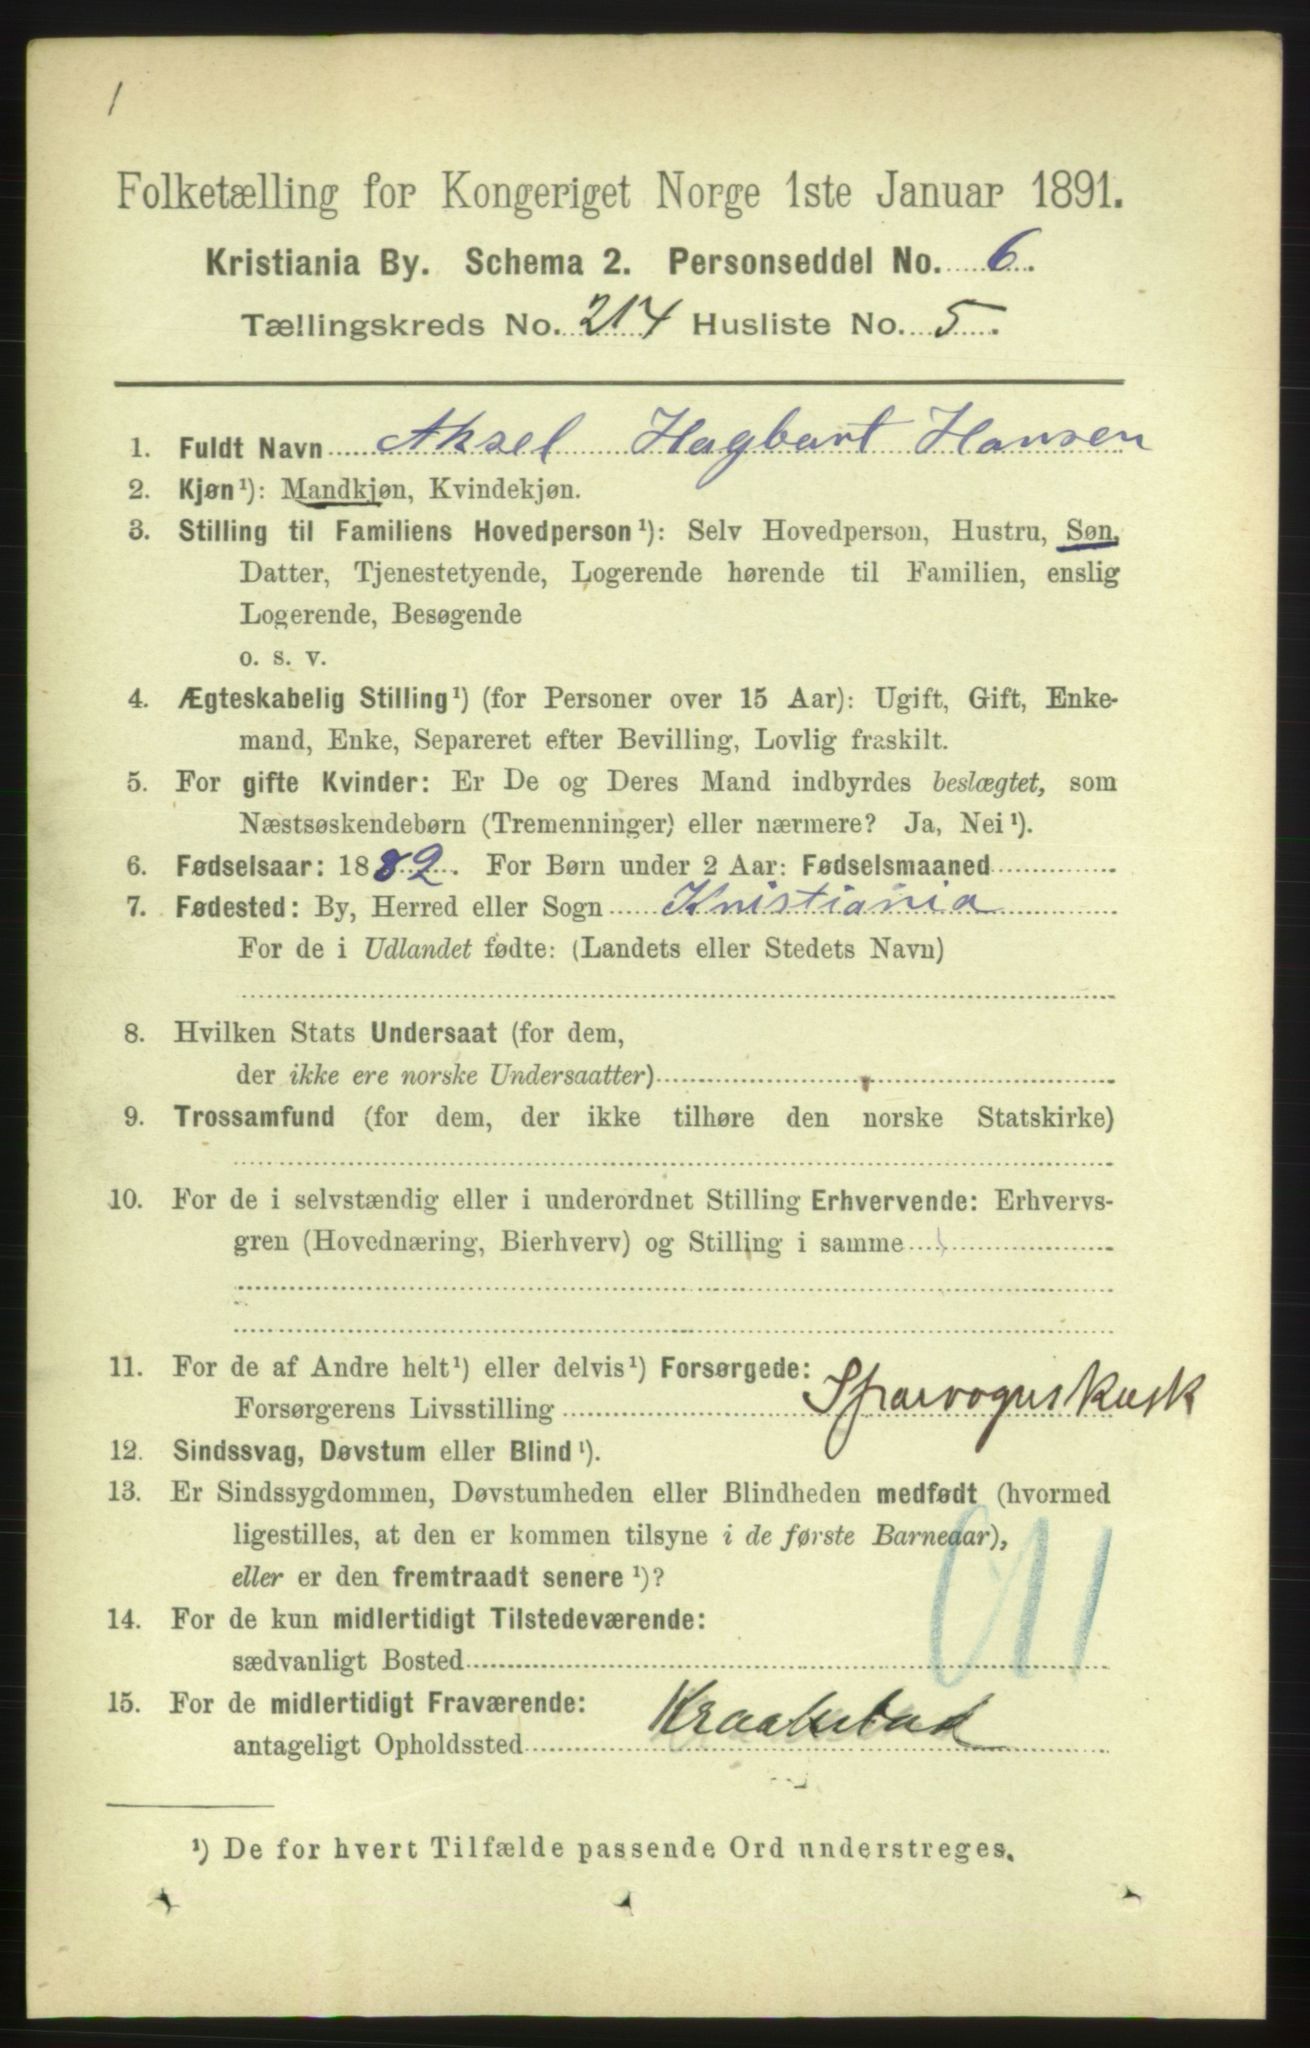 1
Folketælling for Kongeriget Norge 1ste Januar 1891.
Kristiania By. Schema 2. Personseddel No. 6.
Tællingskreds No. 214 Husliste No. 5.
1. Fuldt Navn Aksel Hagbart Hansen
2. Kjøn¹): Mandkjøn, Kvindekjøn.
3. Stilling til Familiens Hovedperson¹): Selv Hovedperson, Hustru, Søn,
Datter, Tjenestetyende, Logerende hørende til Familien, enslig
Logerende, Besøgende
o. s. v.
4. Ægteskabelig Stilling¹) (for Personer over 15 Aar): Ugift, Gift, Enke-
mand, Enke, Separeret efter Bevilling, Lovlig fraskilt.
5. For gifte Kvinder: Er De og Deres Mand indbyrdes beslægtet, som
Næstsøskendebørn (Tremenninger) eller nærmere? Ja, Nei¹).
6. Fødselsaar: 1882. For Børn under 2 Aar: Fødselsmaaned
7. Fødested: By, Herred eller Sogn Kristiania
For de i Udlandet fødte: (Landets eller Stedets Navn)
8. Hvilken Stats Undersaat (for dem,
der ikke ere norske Undersaatter)
9. Trossamfund (for dem, der ikke tilhøre den norske Statskirke)
10. For de i selvstændig eller i underordnet Stilling Erhvervende: Erhvervs-
gren (Hovednæring, Bierhverv) og Stilling i samme
11. For de af Andre helt¹) eller delvis¹) Forsørgede:
Forsørgerens Livsstilling Sporvognskusk
12. Sindssvag, Døvstum eller Blind¹).
13. Er Sindssygdommen, Døvstumheden eller Blindheden medfødt (hvormed
ligestilles, at den er kommen tilsyne i de første Barneaar),
eller er den fremtraadt senere¹)?
14. For de kun midlertidigt Tilstedeværende:
sædvanligt Bosted
15. For de midlertidigt Fraværende:
antageligt Opholdssted Kraakstad
¹) De for hvert Tilfælde passende Ord understreges.